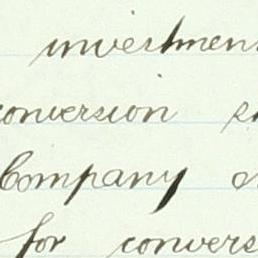 investmen
conversion
Company
for convers